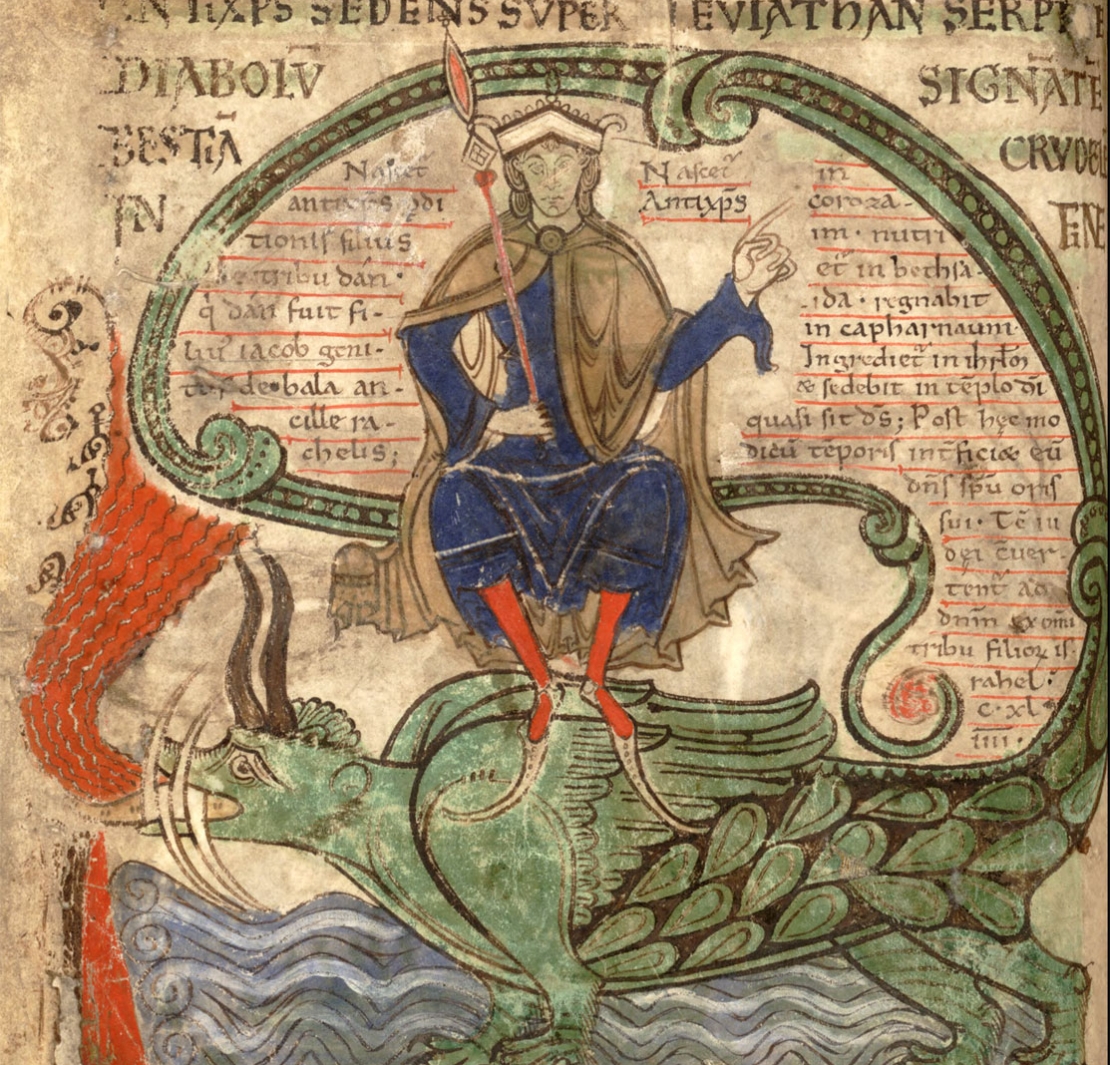 ANTIXP̄S SEDENS SVPER LEVIATHAN SERPE
DIABOLV̄ SIGNĀTĒ
BESTIĀ CRVDEL
IN FINE
Nascet᷑
antixp̄s p̱di
tionis filius
de tribu dan·
q̇ dan fuit fi-
lius iacob geni-
tus de bala an-
cille ra-
chelis;
Nascet᷑
Antixp̄s
in
coroza-
im· nutri
et᷑ in bethsa-
ida· regnabit
in capharnaum·
Ingrediet᷑ in ihrl̄m
& sedebit in tēplo di
quasi sit ds̄; Post hęc mo
dicū tēporis int̄ficiæ eū
dn̄s sp̄u oris
sui· Tē iu
dęi c̄uer-
tent᷑ ad
dnīm ex omi
tribu filioꝝ is-
rahel·
c·xl
iiii·